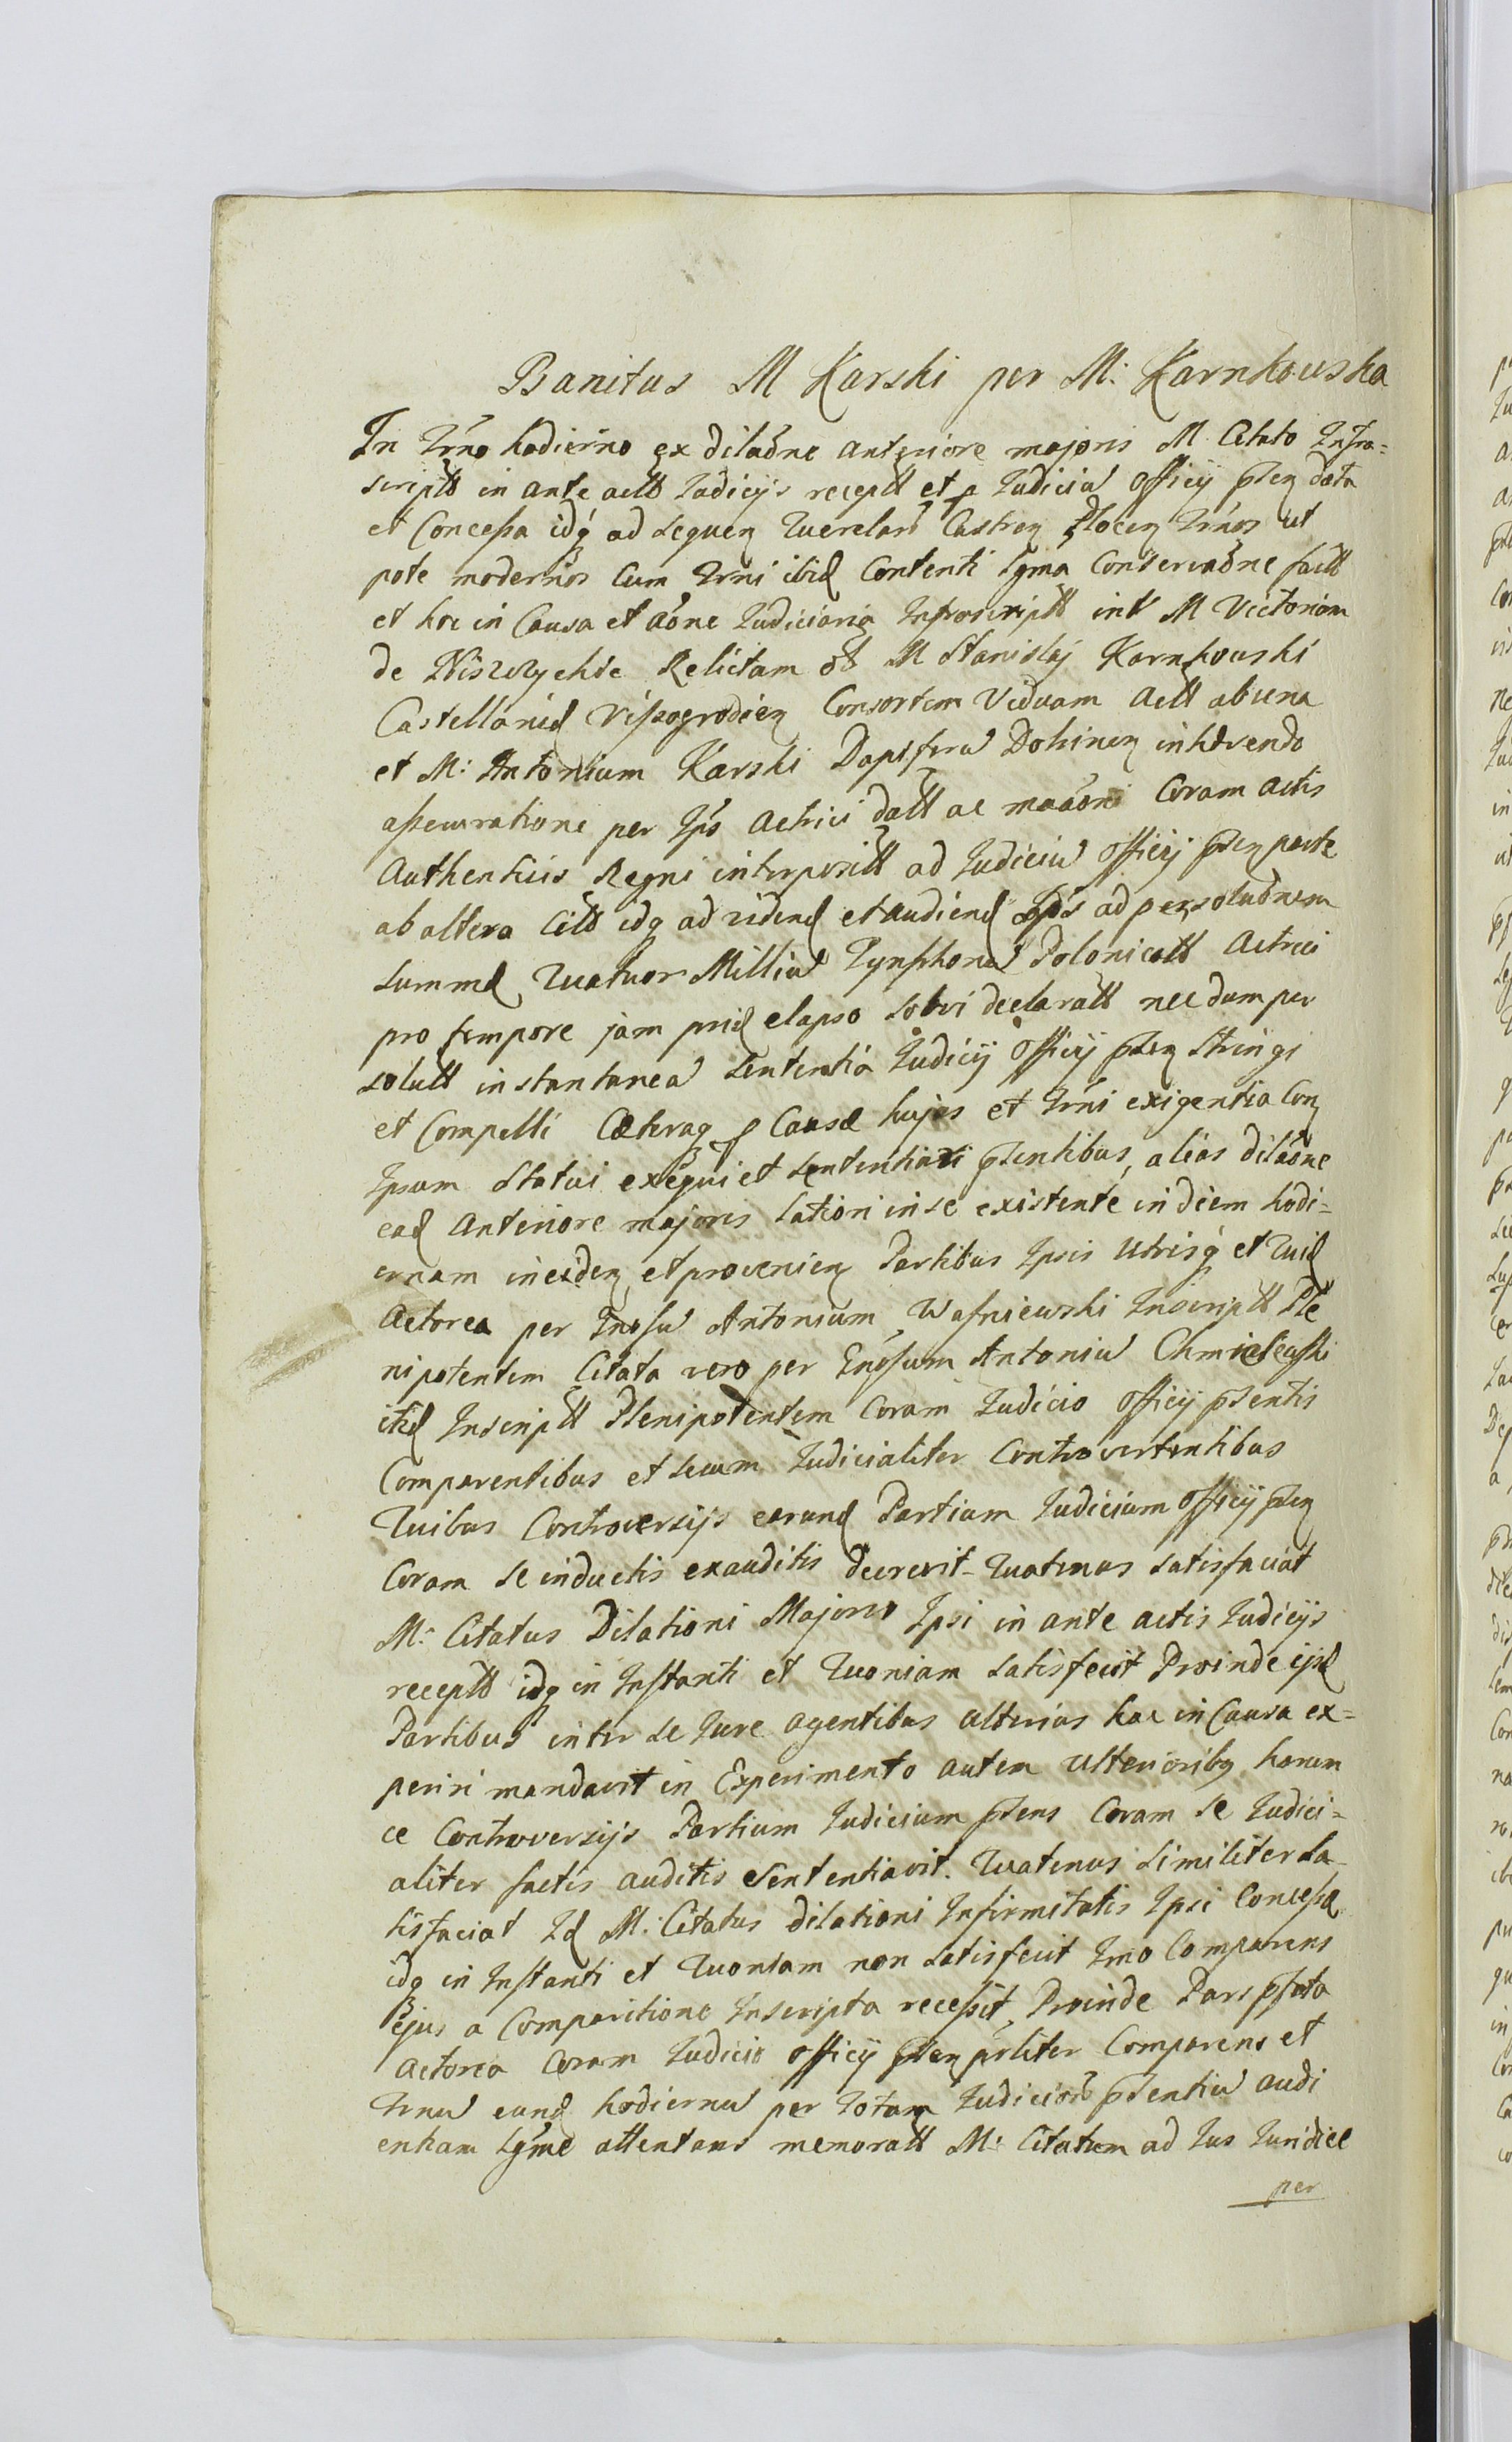 Banitus M Karski per M: Karnkouska
In Trno hodierno ex dilaône anteriore majoris M Citato Infra=
scriptt in ante actt Iudicijs receptt et p Iudiciu Officij psen data
et Concessa idq ad sequen Querelar Castren Plocen Trnos ut
pote modernos Cum Trni ibid Contenti Lgma Conservaône factt
et hoc in Causa et aône Iudiciaria Infrascriptt int M Victoriam
de Relictam ol M Stanislaj Karnkouski
Castellanid Vissogrodien Consortem Viduam Actt ab una
et M: Antonium Karski Dapiferu Dobrinen inhærendo
assecuratione per Ips Actrici datt ac Coram actis
Authenticis Regni interpositt ad Iudiciu Officij psen parte
ab altera Citt idq ad vidend et audiend Ips ad persoluônem
Summæ Quatuor Milliu Tynphonu Polonicatt Actrici
pro tempore jam prid elapso solvi declaratt nec dum per
solutt instantanea Sententia Iudicij Officij psen Stringi
et Compelli Cæteraq p Causæ hujus et Trni exigentia Con
Ipsum Statui exequi et Sententiari psentibus, alias dilaône
ead anteriore majoris Lationi in se existente in diem hodi=
ernam inciden et provenien Partibus Ipsis Utrisq et Quid
Actorea per Gnosu Antonium Wasniewski Inscriptt Ple
nipotentem Citata vero per Gnosum Antoniu Chmielewski
itid Inscriptt Plenipotentem Coram Iudicio Officij psentis
Comparentibus et Secum Iudicialiter Controvertentibus
Quibus Controversijs earund Partium Iudicium Officij psen
Coram Se inductis exauditis decrevit Quatenus Satisfaciat
M: Citatus Dilationi Majoris Ipsi in ante actis Iudicijs
receptt idq in Instanti et Quoniam Satisfecit Proinde ijsd
Partibus inter Se Jure agentibus ulterius hac in Causa ex=
periri mandavit in Experimento autem Ulterioribq harum
ce Controversijs Partium Iudicium psens Coram Se Iudici=
aliter factis auditis Sententiavit. Quatenus Similiter Sa=
tisfaciat Id M: Citatus dilationi Infirmitatis Ipsi Concessæ
idq in Instanti et Quoniam non Satisfecit Imo Comparens
Ejus a Comparitione Inscripta recessit, Proinde Pars psata
Actorea Coram Iudicio Officij psen prliter Comparens et
Trnu eund hodiernu per Totam Iudicior psentiu audi
entiam Lgme attentans memoratt M: Citatum ad Jus Juridice
per